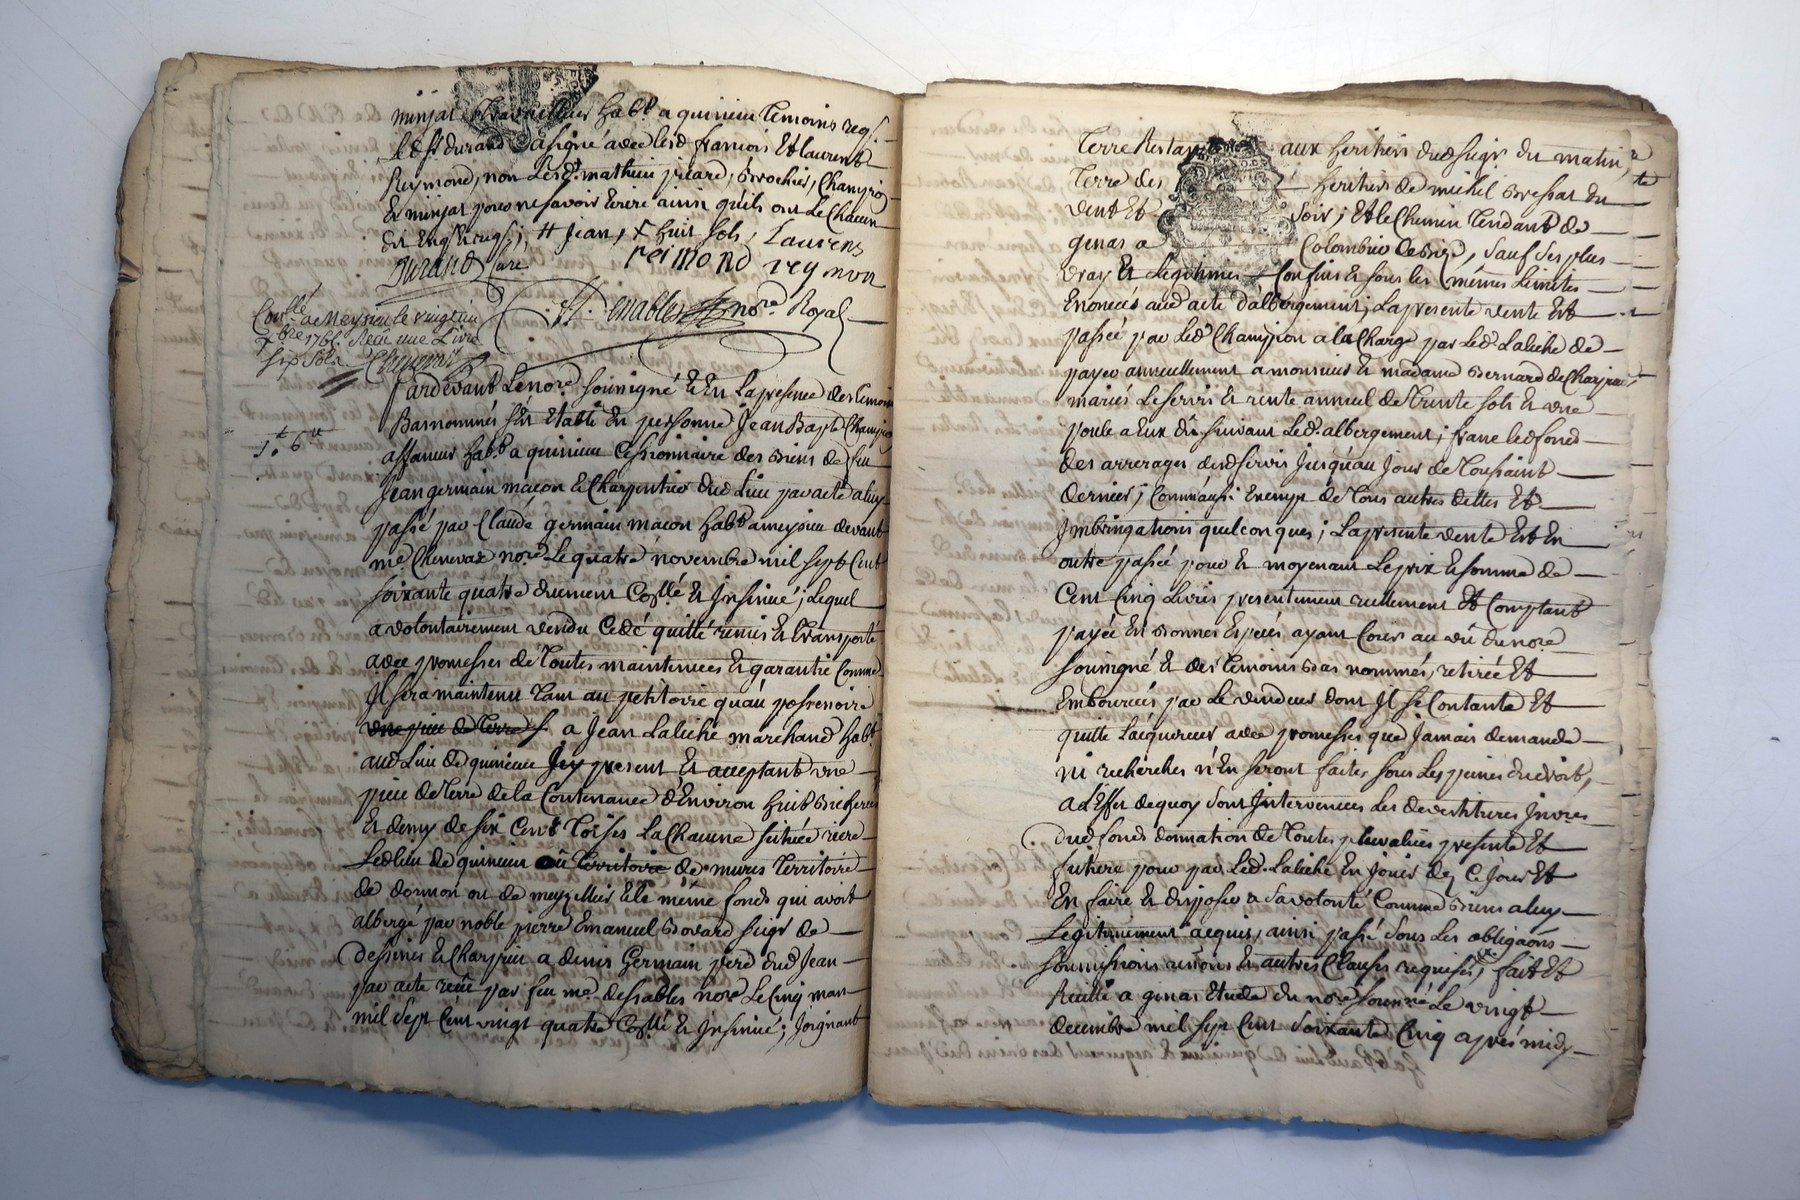 minjat travailleur habt a quinieu temoins req.
led. sr durand a signé avec lesd francois Et laurent
Reymond, non Lesd. mathieu picard, Brochier, Champion
Et minjat pour ne savoir Ecrire ainsi qu'ils ont Le Chacun
dit Enquis req. jean, huit sols, Laurens
Durand Cure reimond reymon
nore Royal
Collé a Meyzieu le vingt un
xbre 1765 Reçu une Livre
six sols
Pardevant Le nore soussigné Et En La presence des temoins
Basnommés s'Est Etablit En personne Jean Bapte Champion
affaneur habt a quinieu Cessionnaire des Biens de feu
Jean germain macon Et Charpentier dud Lieu par acte a luy
passé par Claude germain macon habt a meyzieu devant
me. Chenevaz nore. Le quatre novembre mil sept Cent
soixante quatre duement Collé Et Insinué; Lequel
a volontairement vendu Cedé quitté remis Et transporté
avec promesses de toutes maintenues Et garantie Comme
Il sera maintenu tant au petitoire qu'au possessoire
une piece de terre a Jean Labiche marchand habt.
aud Lieu de quinieu Icy present Et acceptant une
piece de terre de la Contenance d'Environ huit Bicherées
Et demy de six Cent toises La Chacune située riere
Led lieu de quinieu territoire de mures territoire
de donnon ou de meyzellier Et le même fonds qui avoit
albergé par noble pierre Emanuel Bovard seigr de
Dessines Et Charpieu a denis Germain pere dud Jean
par acte recu par feu me. dessables nore Le Cinq mars
mil Sept Cent vingt quatre Collé Et Insinué; Joignant
Terre Restante aux heritiers dud seigr du matin,
Terre des heritiers de michel Bressat du
vent Et Soir; Et le Chemin tendant de
genas a Colombier de Bize, Sauf Ses plus
vray Et Legitimes Confins Et sous les mêmes Limites
Enoncés aud acte d'albergement; La presente vente Est
passée par Led Champion a la Charge par Led. Labiche de
payer annuellement a monsieur Et madame Bernard de Charpieu
mariés Le servis Et rente annuel de trente sols Et une
poule a Eux dû suivant Led. albergement; franc led fonds
des arrerages dud servis Jusqu'au Jour de toussaint
dernier; Comm'aussi Exempt de tous autres dettes Et
Imbringations quelconques; La presente vente Est En
outre passée pour Et moyenant Le prix Et somme de
Cent Cinq Livres presentement reellement Et Comptant
payée En Bonnes Especes ayant Cours au vû du nore
soussigné Et des temoins Bas nommés, retirée Et
Emboursée par Le vendeur dont Il se Contante Et
quitte Lacquereur avec promesses que Jamais demande
ni recherches n'En seront faites sous Les peines du droit,
a L'Effet de quoy Sont Intervenues Les devestitures Invres
dud fonds donnation de toutes plusvalües presente Et
future pour par Led. Labiche En Jouir dez Ce Jour Et
En faire Et disposer a Sa volonté Comme Biens a luy
Legitimement acquis, ainsi passé Sous Les obligaons
soumissions renons Et autres Clauses requises, fait Et
Recitté a genas Etude du nore soussigné Le vingt
decembre mil sept Cent Soixante Cinq après midy